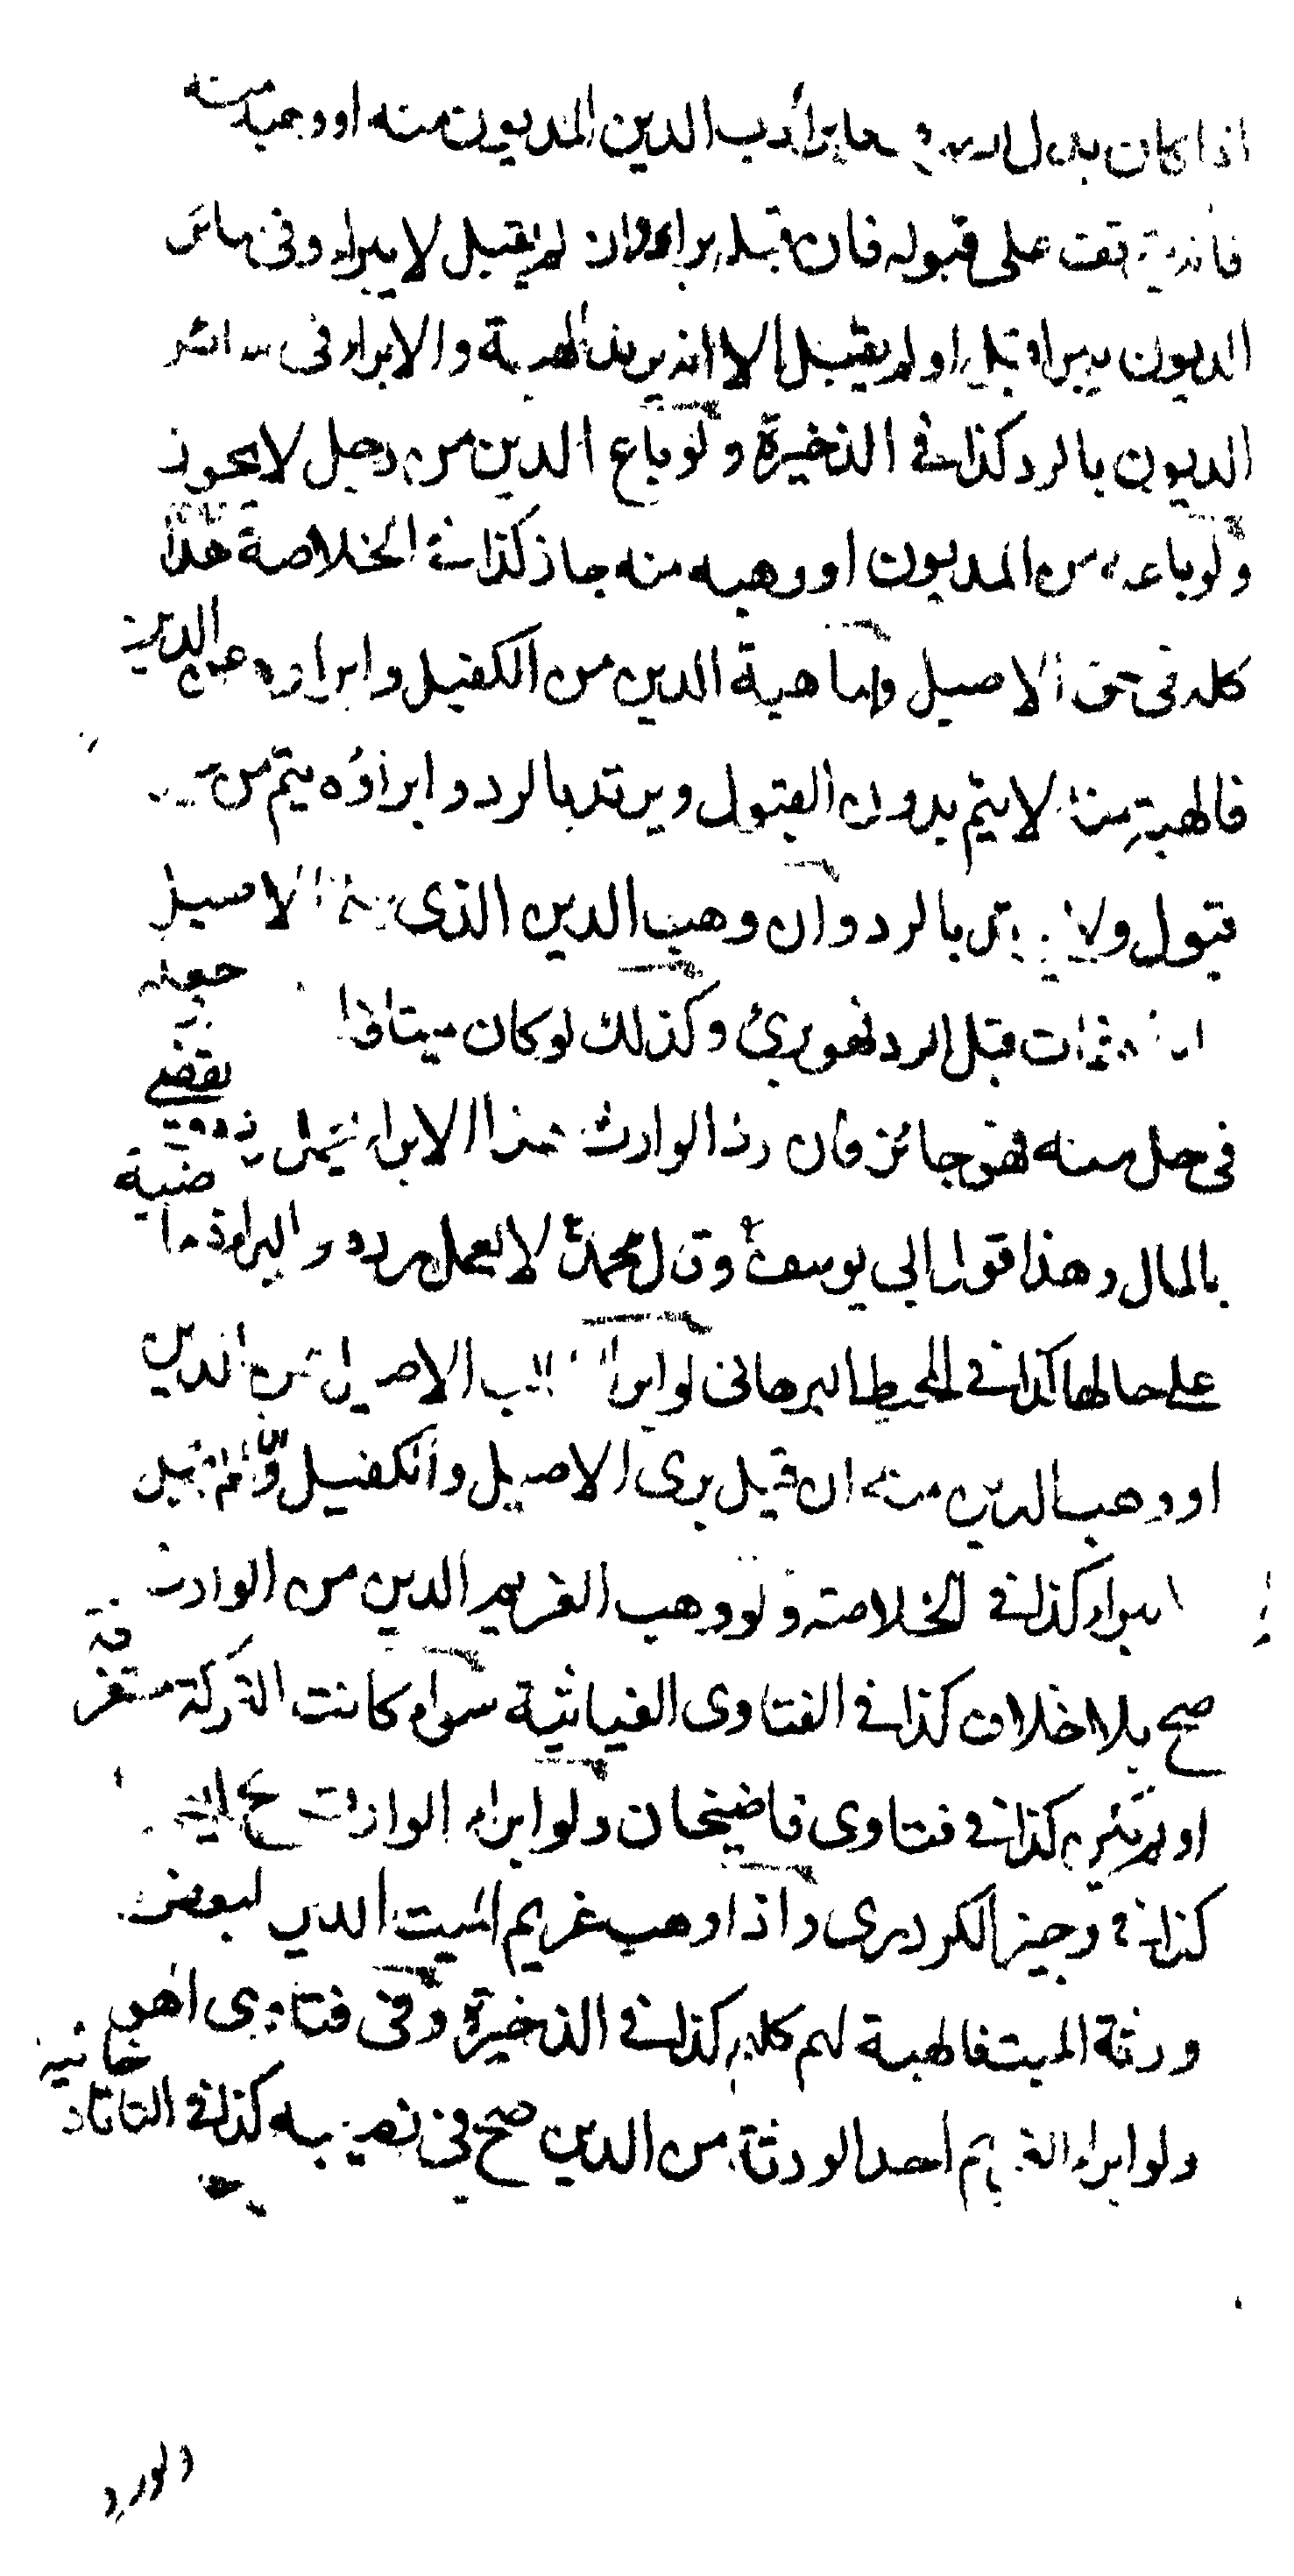 اذا كان بدل الصرف فابرأ رب الدين المديون منه او وهبه منه
فانه يتوقف على قبوله فان قبله براء وان لم يقبل لا يبراء وفى سائر
الديون يبراء قبل او لم يقبل الا انه يرتد الهبة والابراء فى سائر
الديون بالرد كذا فى الذخيرة ولو باع الدين من رجل لا يجوز
ولو باعه من المديون او وهبه منه جاز كذا فى الخلاصة هذا
كله فى حق الاصيل واما هبة الدين من الكفيل وابراؤه عن الدين
فالهبة منه لا يتم بدون القبول ويرتد بالرد وابراؤه يتم من غير
قبول ولا يرتد بالرد وان وهب الدين الذى الاصيل
مات قبل الرد فهو برئ وكذلك لو كان ميتا فاذا جعله
فى حل منه فهو جائز فان رد الوارث هذا الابراء يعمل رده ويقضى
بالمال وهذا قول ابى يوسف وقال محمد لا يعمل برده والبراءة ماضية
على حالها كذا فى المحيط البرهانى لو ابراء الطالب الاصيل من الدين
او وهب الدين منه ان قبل برى الاصيل والكفيل وان لم يقبل
لم يبراء كذا فى الخلاصة ولو وهب الغريم الدين من الوارث
صح بلا خلاف كذا فى الفتاوى الغياثية سواء كانت التركة مستغرقة
او لم تكن كذا فى فتاوى قاضيخان ولو ابراء الوارث صح ايضا
كذا فى وجيز الكردرى واذا وهب غريم الميت الدين لبعض
ورثة الميت فالهبة لهم كلهم كذا فى الذخيرة وفى فتاوى اهو
ولو ابراء الغريم احد الورثة من الدين صح فى نصيبه كذا فى التاتارخانيه
ولو رد